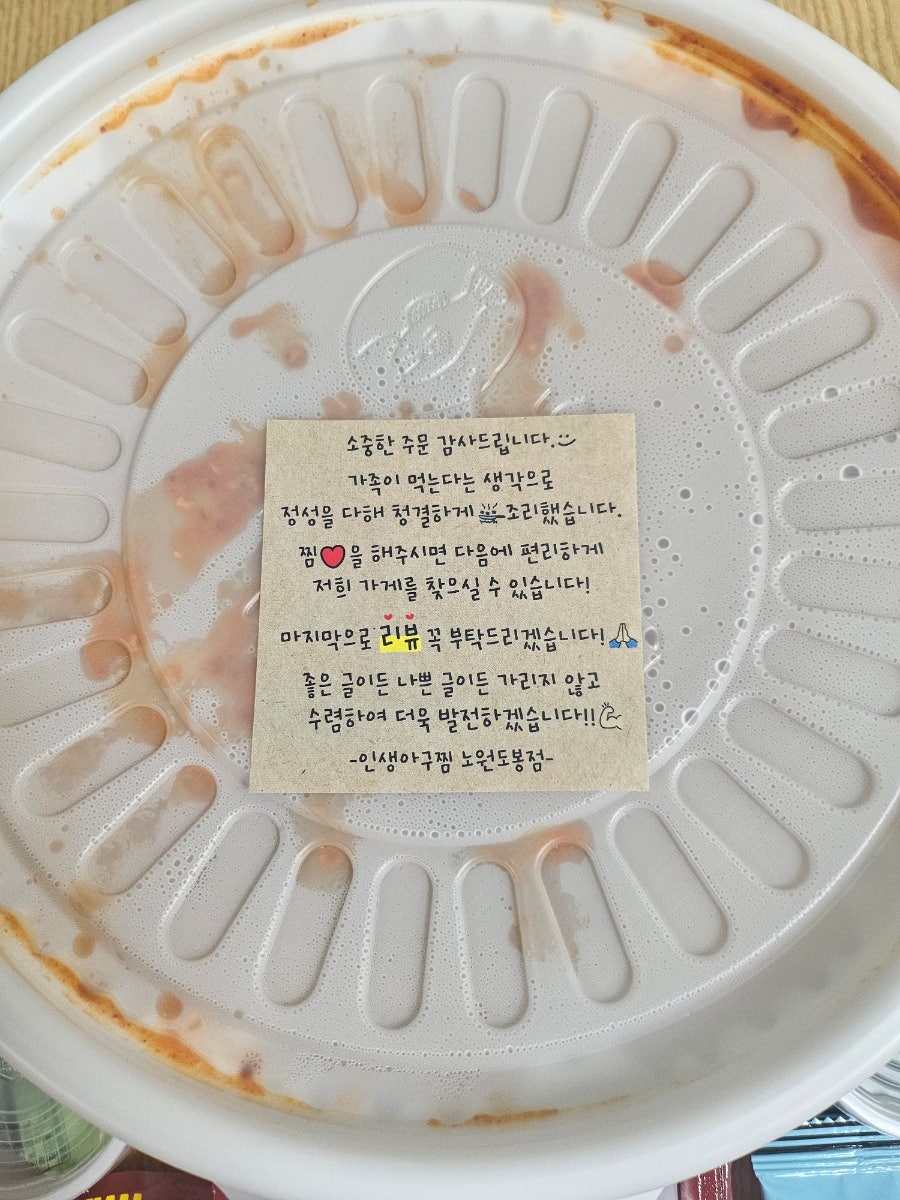 소중한 주문 감사드립니다.
가족이 먹는다는 생각으로
정성을 다해 청결하게 조리했습니다.
찜❤을 해주시면 다음에 편리하게
저희 가게를 찾으실 수 있습니다!
마지막으로 리뷰 꼭 부탁드리겠습니다!🙏
좋은 글이든 나쁜 글이든 가리지 않고
수렴하여 더욱 발전하겠습니다!!
-인생아구찜 노원도봉점-